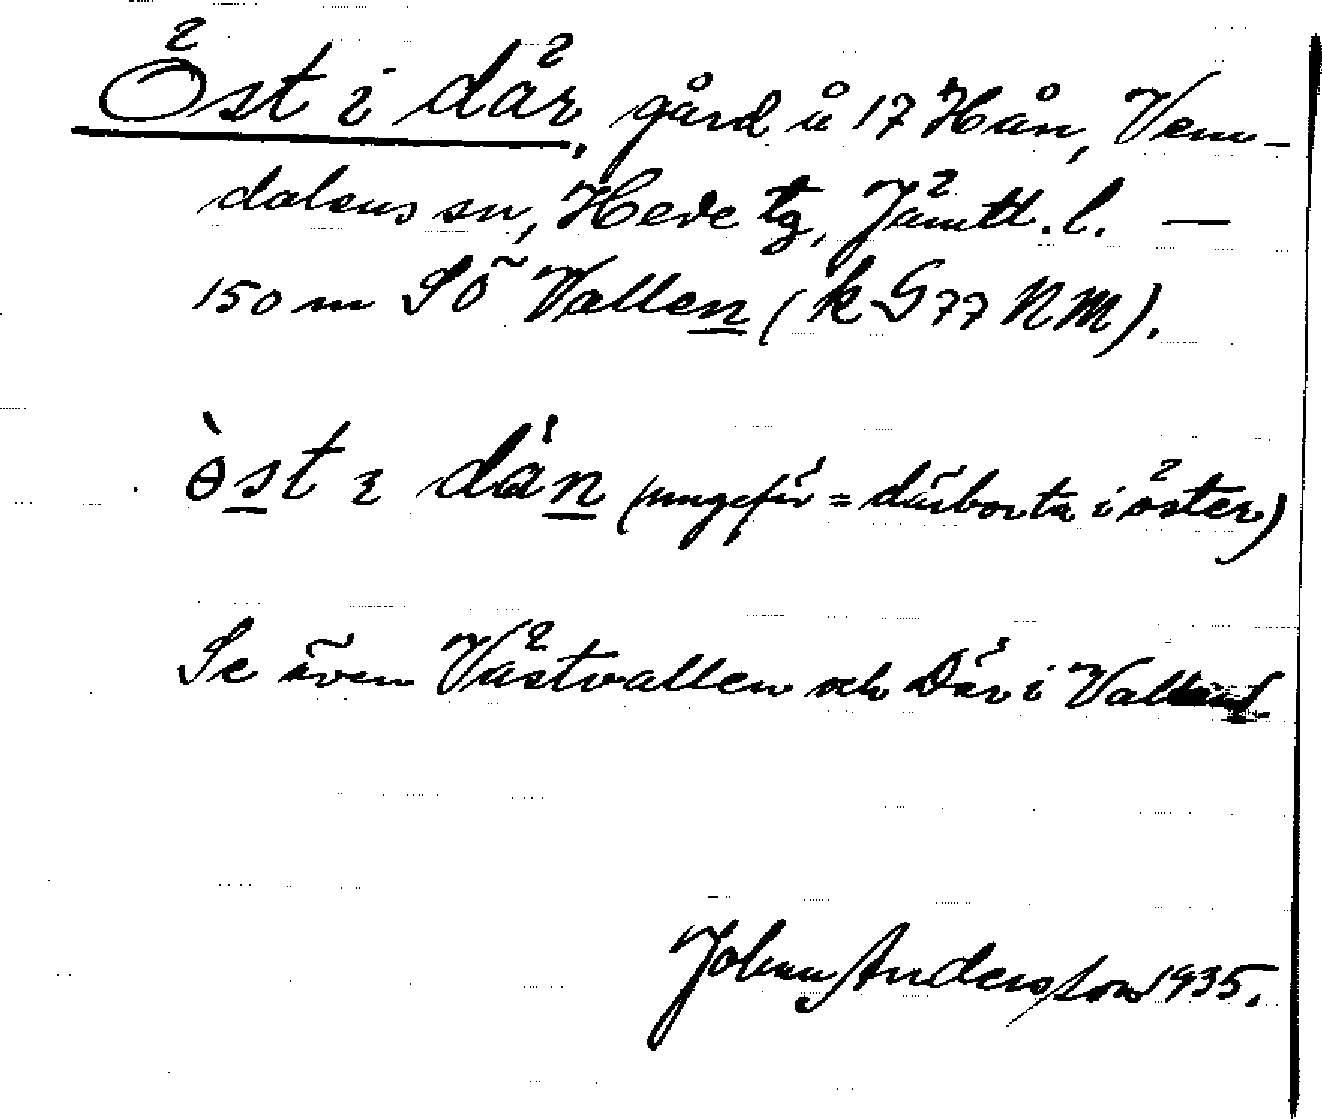 Öst i där, gård å 17 Hån, Vem-
dalens sn, Hede tg, Jämtl. l. —
150 m SÖ Vallen (k G 77 NM).
òst ɩ dän (ungefär = därborta i öster)
Se även Västvallen och Där i
Johan Andersson 1935.